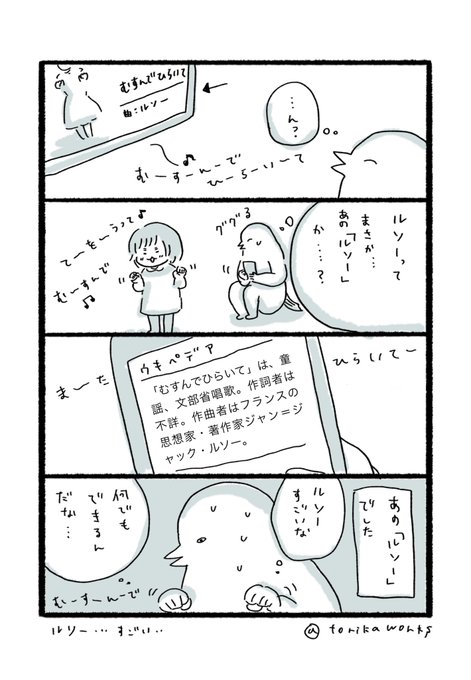 むすんでひらいて
曲：ルソー
…ん？
むーすーんーで
ひーらーいーて
ルソーって
まさか…
あの「ルソー」
か……？
ググる
てーをーうって♪
むーすんで
まーた
ひらいてー
ウキペデア
「むすんでひらいて」は、童
謡、文部省唱歌。作詞者は
不詳。作曲者はフランスの
思想家・著作家ジャン＝ジ
ャック・ルソー。
あの「ルソー」
でした
ルソー
すごいな
何でも
できるん
だな…
むーすーんーで
ルソー…すごい…
@torikaworks